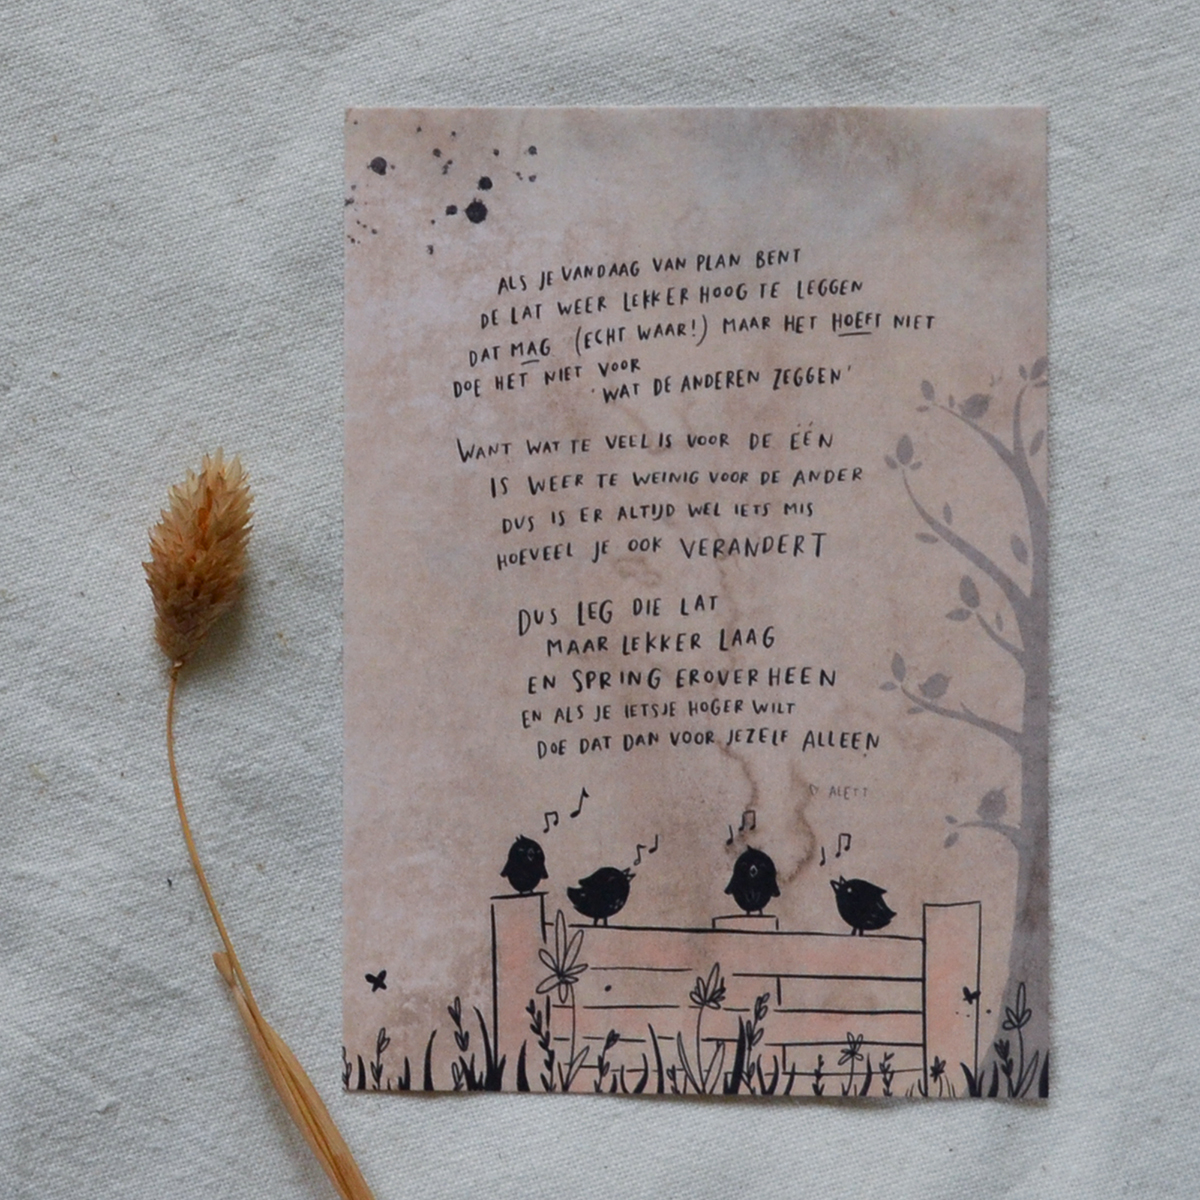 ALS JE VANDAAG VAN PLAN BENT
DE LAT WEER LEKKER HOOG TE LEGGEN
DAT MAG (ECHT WAAR!) MAAR HET HOEFT NIET
DOE HET NIET VOOR
'WAT DE ANDEREN ZEGGEN'
WANT WAT TE VEEL IS VOOR DE ÉÉN
IS WEER TE WEINIG VOOR DE ANDER
DUS IS ER ALTIJD WEL IETS MIS
HOEVEEL JE OOK VERANDERT
DUS LEG DIE LAT
MAAR LEKKER LAAG
EN SPRING EROVERHEEN
EN ALS JE IETSJE HOGER WILT
DOE DAT DAN VOOR JEZELF ALLEEN
ALETT